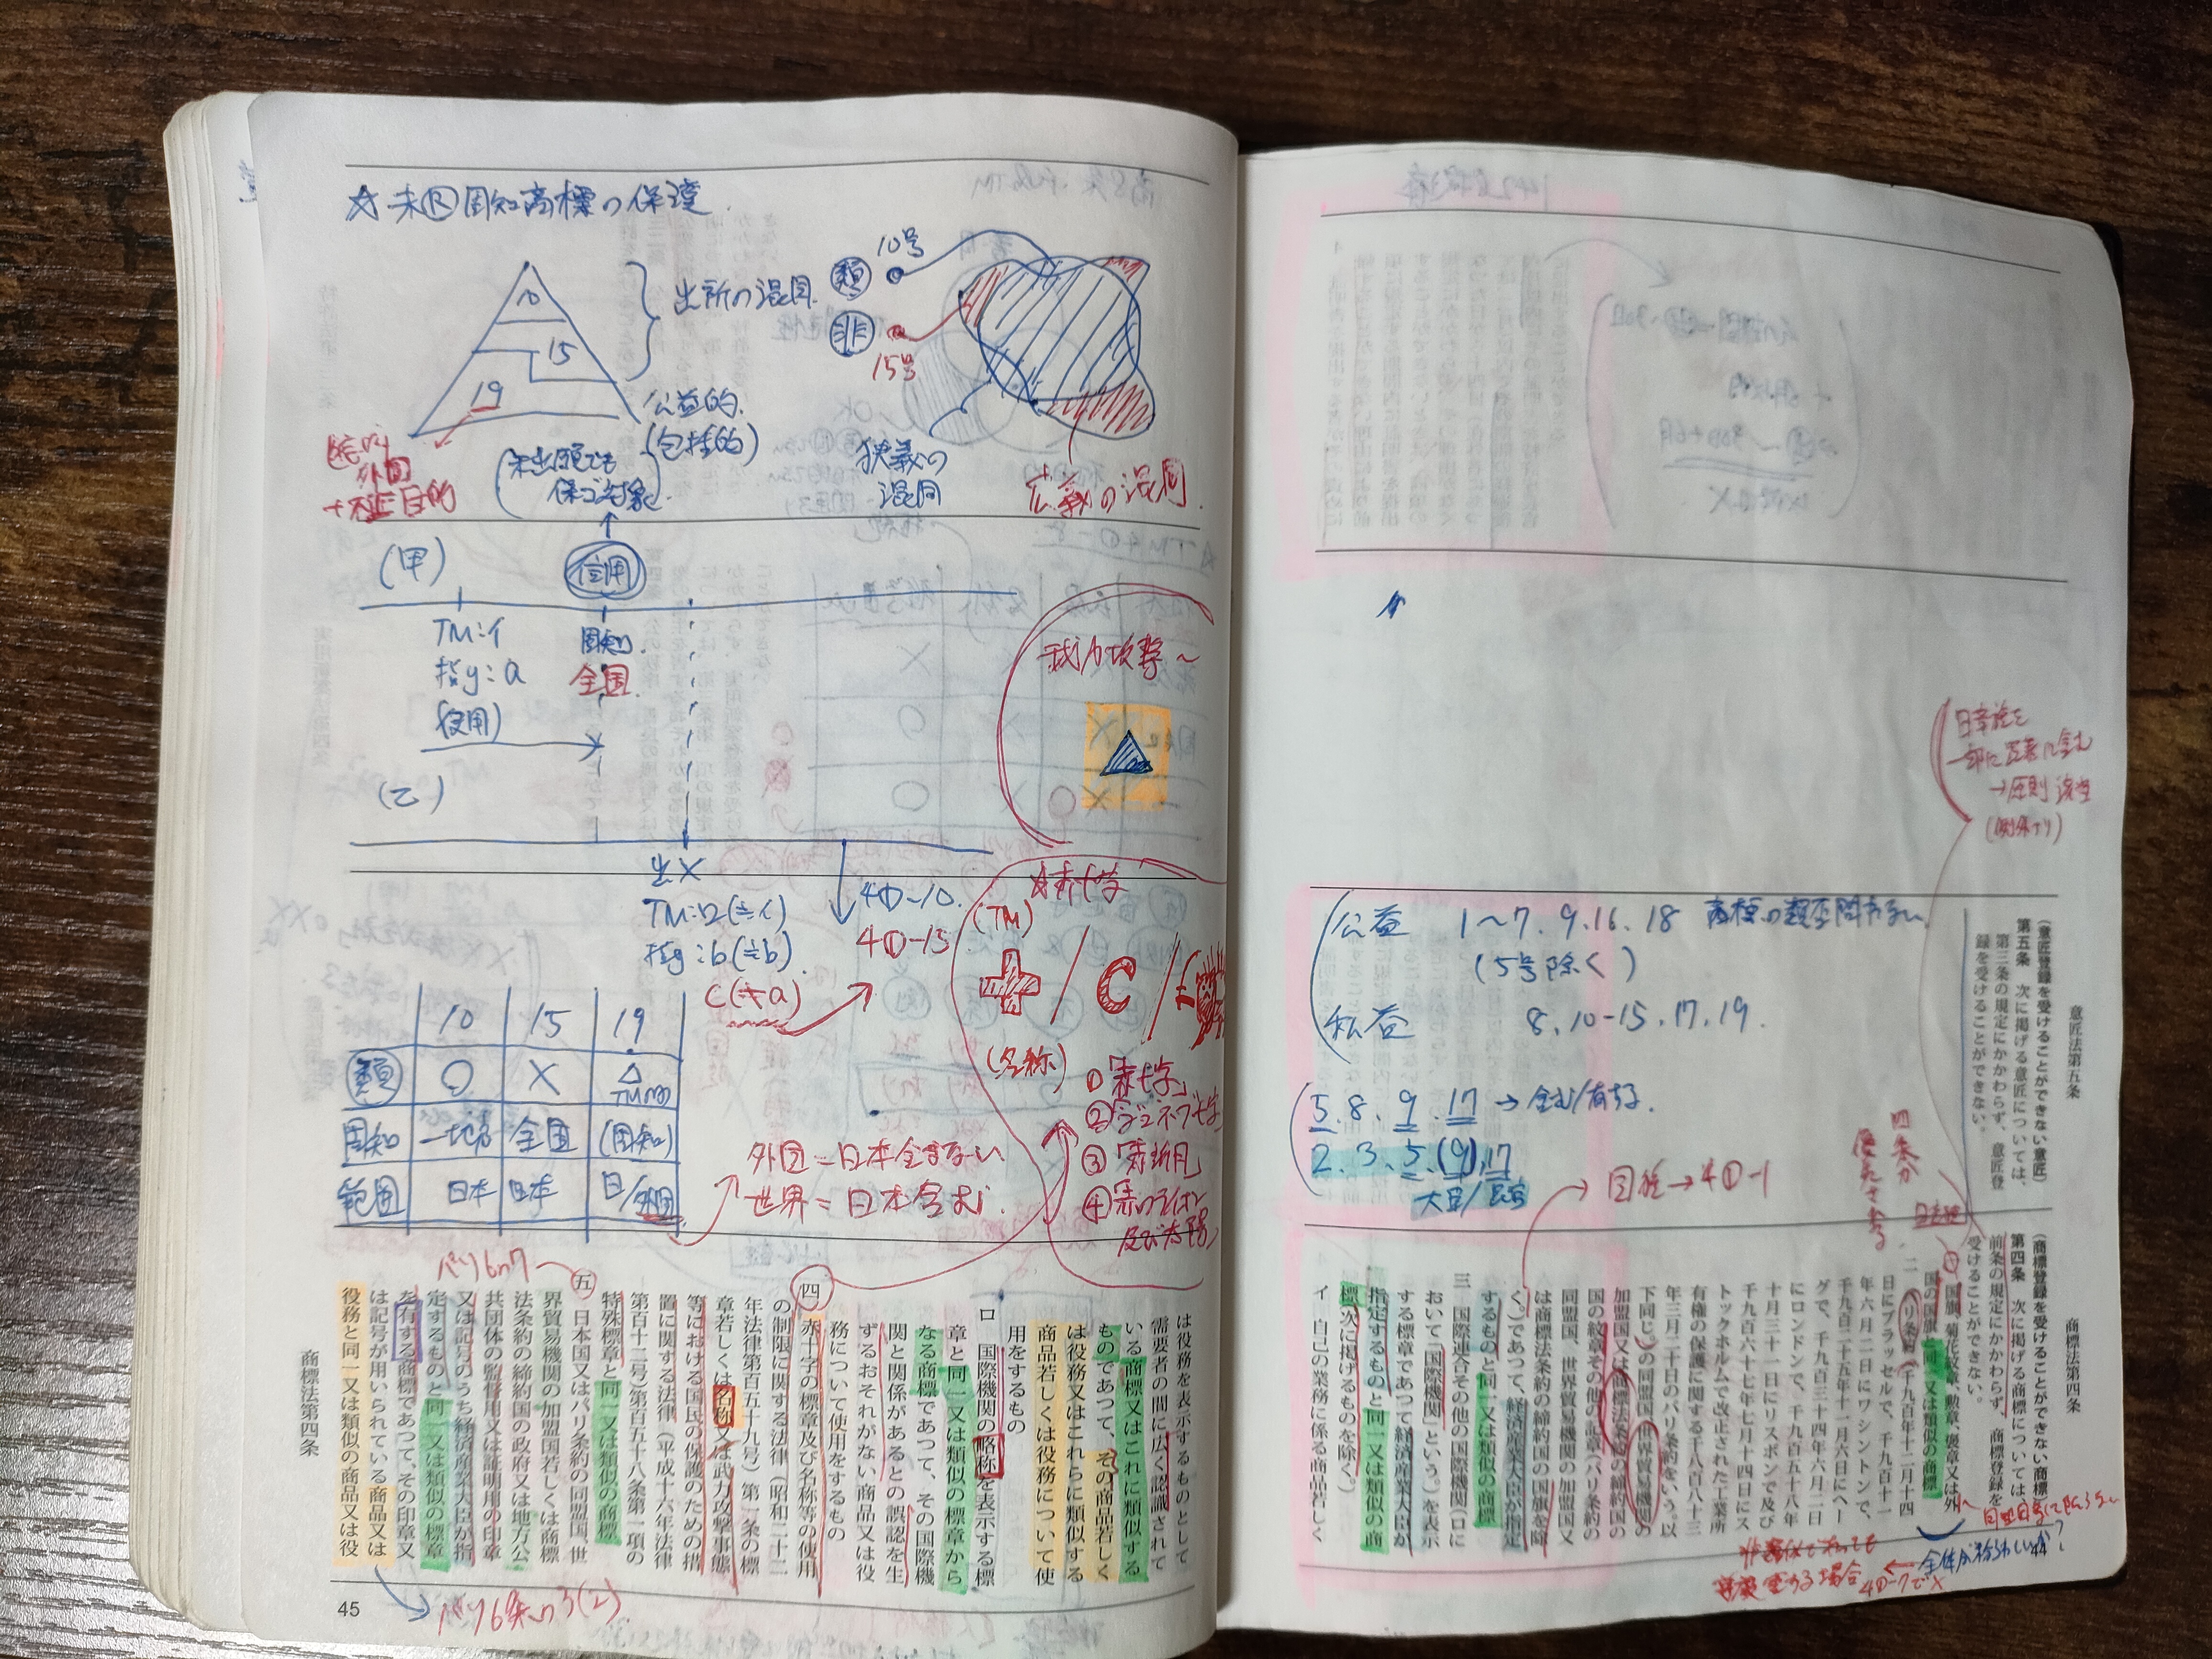 ☆未Ⓡ周知商標の保護.
10
15
19
出所の混同.
公益的.
(包括的)
外国
+不正目的
(未出願でも
保ゴ対象)
類
10号
非
15号
狭義の
混同
広義の混同.
(甲)
信用
TM:イ
指g:a
(使用)
周知.
全国.
(乙)
出X
TM:ロ(≒イ)
指g:b(≒b).
C(≠a)
4①-10.
4①-15
武力攻撃~
☆赤十字
(TM)
+/C/
(名称)
①「赤十字」
②「ジュネーブ十字」
③「赤新月」
④「赤のライオン
及び太陽」
10 15 19
類 ○ X △TMのみ
周知 一地方 全国 (周知)
範囲 日本 日本 日/外国
外国=日本含まない
世界=日本含む.
パリ6の7
は役務を表示するものとして
需要者の間に広く認識されて
いる商標又はこれに類似する
ものであつて、その商品若しく
は役務又はこれらに類似する
商品若しくは役務について使
用をするもの
ロ　国際機関の略称を表示する標
章と同一又は類似の標章から
なる商標であつて、その国際機
関と関係があるとの誤認を生
ずるおそれがない商品又は役
務について使用をするもの
四　赤十字の標章及び名称等の使用
の制限に関する法律（昭和二十二
年法律第百五十九号）第一条の標
章若しくは名称又は武力攻撃事態
等における国民の保護のための措
置に関する法律（平成十六年法律
第百十二号）第百五十八条第一項の
特殊標章と同一又は類似の商標
五　日本国又はパリ条約の同盟国、世
界貿易機関の加盟国若しくは商標
法条約の締約国の政府又は地方公
共団体の監督用又は証明用の印章
又は記号のうち経済産業大臣が指
定するものと同一又は類似の標章
を有する商標であつて、その印章又
は記号が用いられている商品又は
役務と同一又は類似の商品又は役
商標法第四条
45
パリ6条の3(2).
公益　1～7. 9. 16. 18　商標の類否問わない.
(5号除く)
私益　8. 10-15. 17. 19.
5. 8. 9. 17 → 含む/有する.
2. 3. 5. (9). 17
大臣/長官
国旗→4①-1
→原則該当
(例外アリ)
意匠法第五条
（意匠登録を受けることができない意匠）
第五条　次に掲げる意匠については、
第三条の規定にかかわらず、意匠登
録を受けることができない。
商標法第四条
（商標登録を受けることができない商標）
第四条　次に掲げる商標については、
前条の規定にかかわらず、商標登録を
受けることができない。
一　国旗、菊花紋章、勲章、褒章又は外
国の国旗と同一又は類似の商標
二　パリ条約（千九百年十二月十四
日にブラッセルで、千九百十一
年六月二日にワシントンで、
千九百二十五年十一月六日にヘー
グで、千九百三十四年六月二日
にロンドンで、千九百五十八年
十月三十一日にリスボンで及び
千九百六十七年七月十四日にス
トックホルムで改正された工業所
有権の保護に関する千八百八十三
年三月二十日のパリ条約をいう。以
下同じ。）の同盟国、世界貿易機関の
加盟国又は商標法条約の締約国の
国の紋章その他の記章（パリ条約の
同盟国、世界貿易機関の加盟国又
は商標法条約の締約国の国旗を除
く。）であつて、経済産業大臣が指定
するものと同一又は類似の商標
三　国際連合その他の国際機関（ロに
おいて「国際機関」という。）を表示
する標章であつて経済産業大臣が
指定するものと同一又は類似の商
標（次に掲げるものを除く。）
イ　自己の業務に係る商品若しく
44